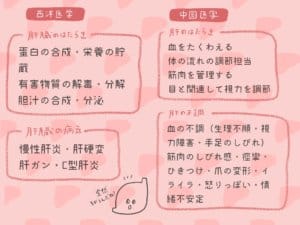 西洋医学
肝臓のはたらき
蛋白の合成・栄養の貯
蔵
有害物質の解毒・分解
胆汁の合成・分泌
肝臓の病位
慢性肝炎・肝硬変
肝ガン・C型肝炎
中国医学
肝のはたらき
血をたくわえる
体の流れの調節担当
筋肉を管理する
目と関連して視力を調節
肝の不調
血の不調(生理不順・視
力障害・手足のしびれ)
筋肉のしびれ感・痙攣・
ひきつけ・爪の変形・イ
ライラ・怒りっぽい・情
緒不安定